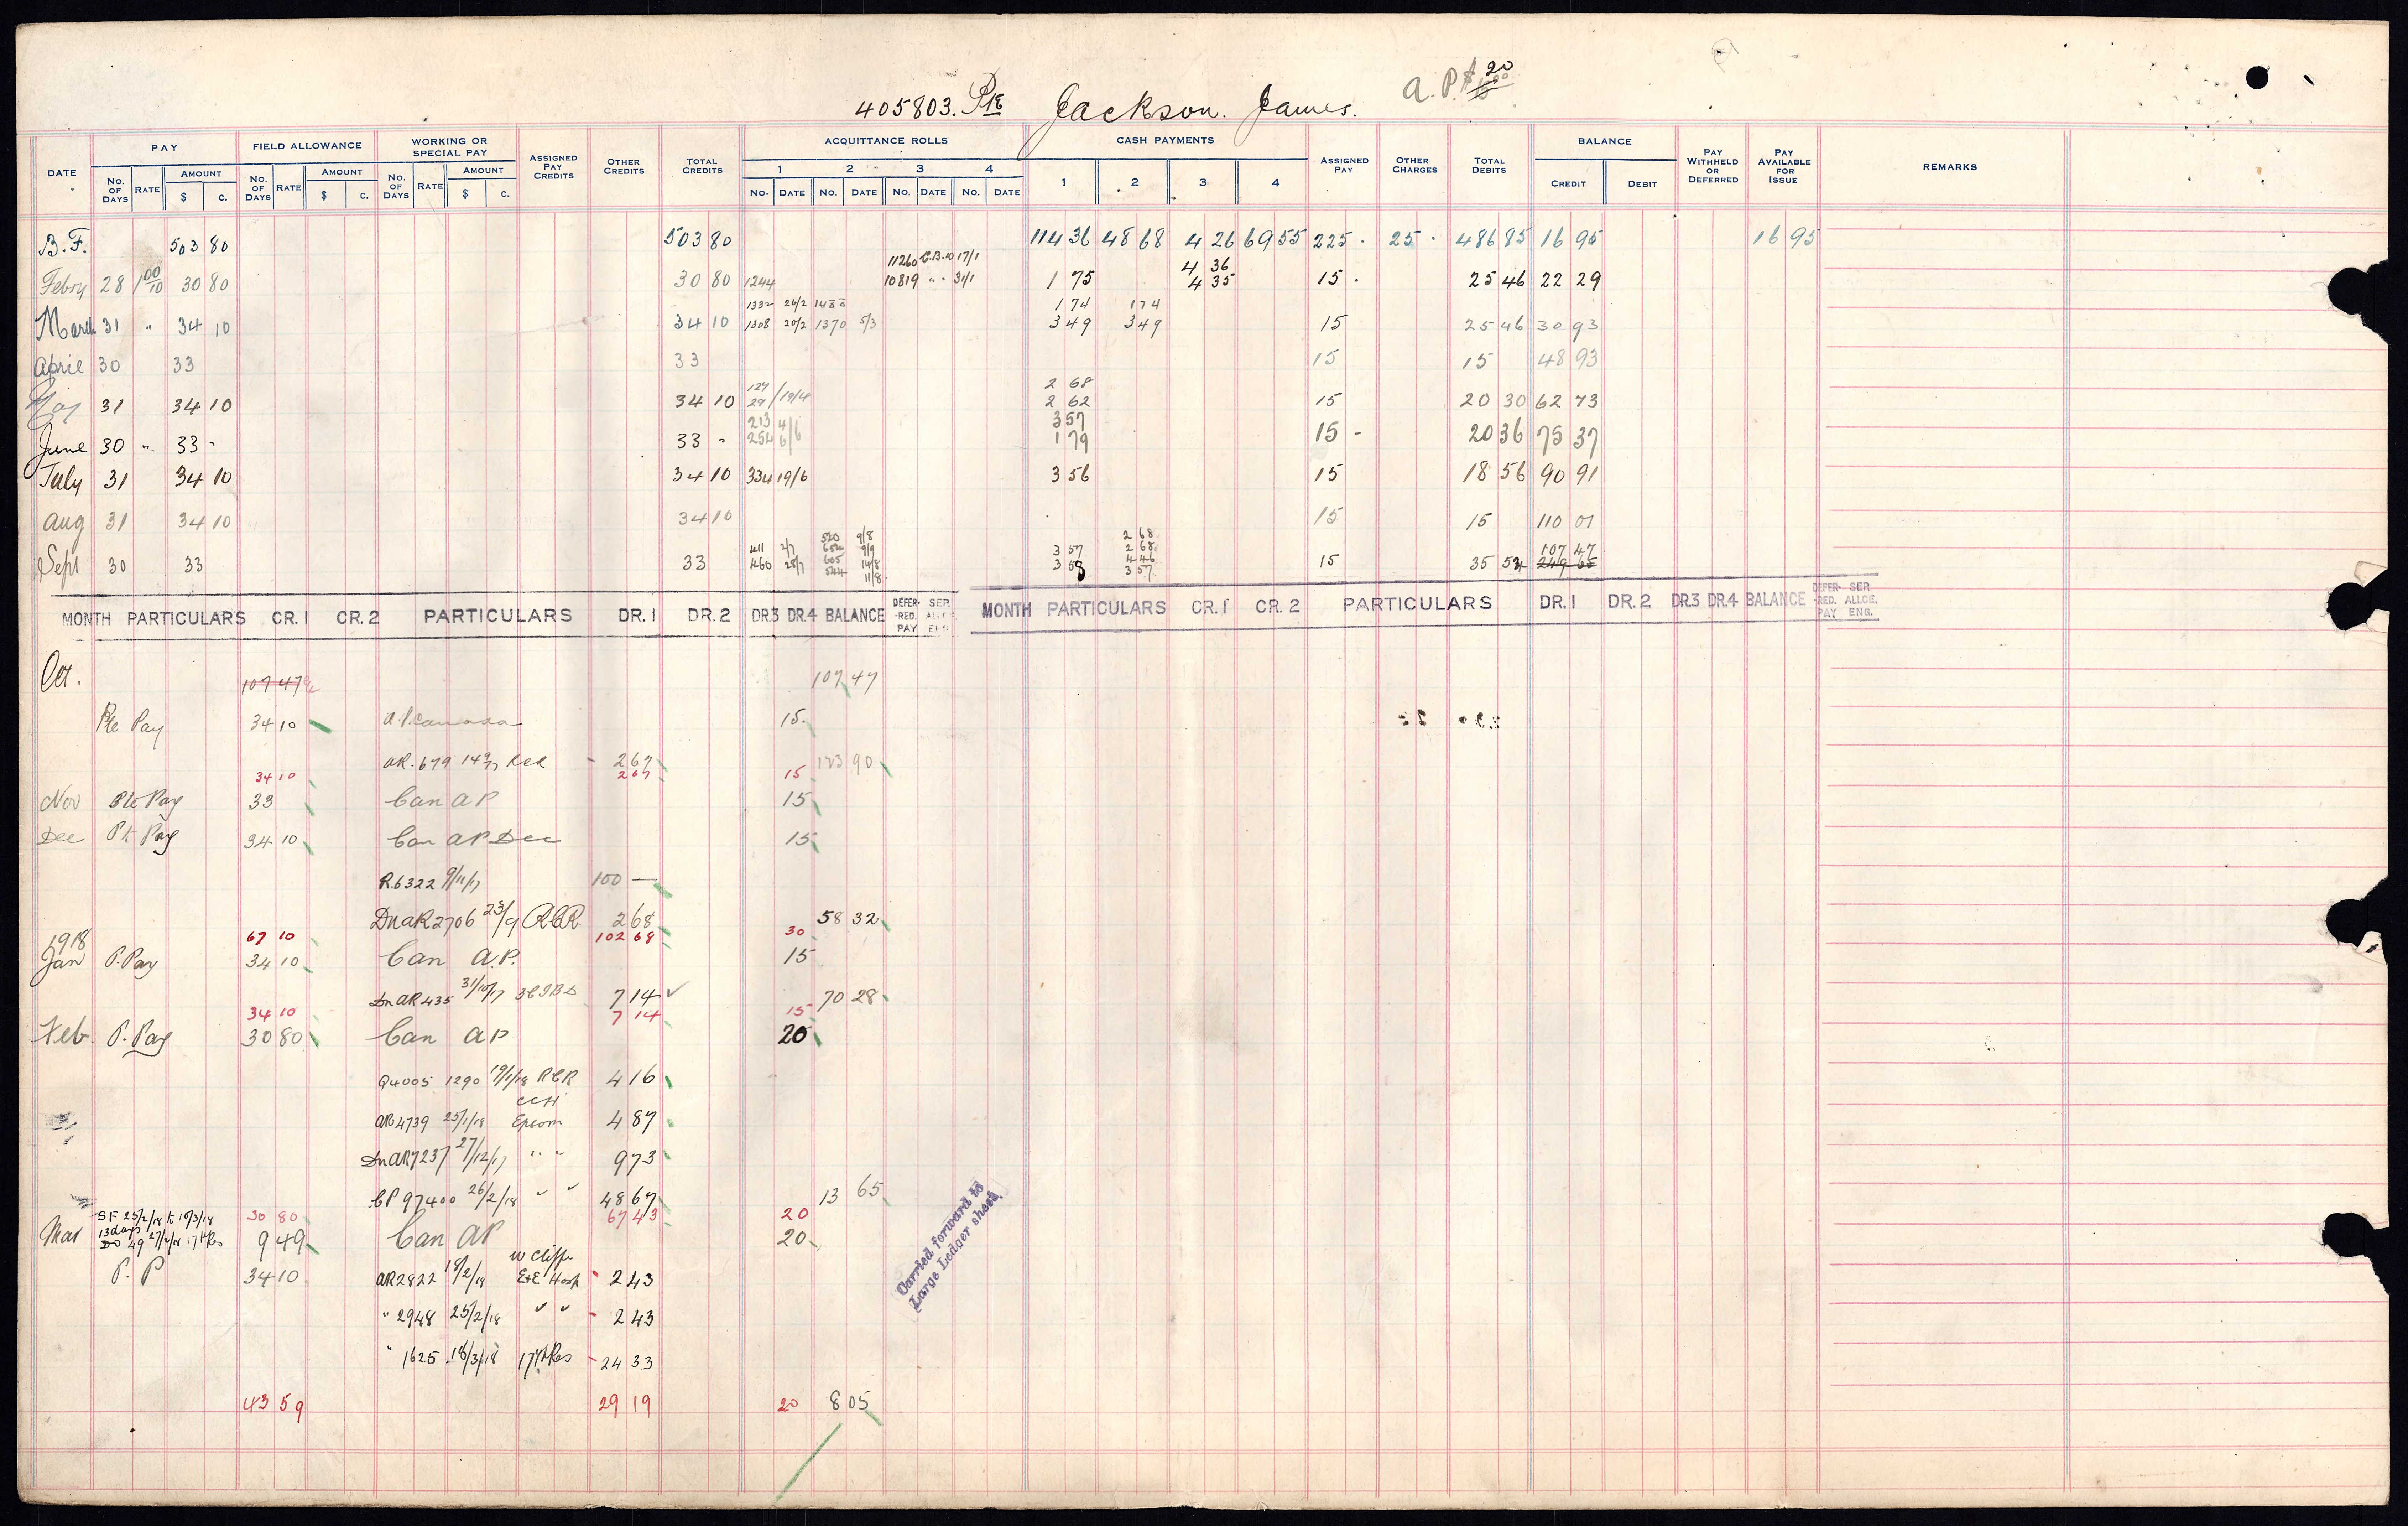 405803. Pte Jackson. James. A.P. $ 20
DATE PAY FIELD ALLOWANCE WORKING OR SPECIAL PAY ASSIGNED PAY CREDITS OTHER CREDITS TOTAL CREDITS ACQUITTANCE ROLLS CASH PAYMENTS ASSIGNED PAY OTHER CHARGES TOTAL DEBITS BALANCE PAY WITHHELD OR DEFERRED PAY AVAILABLE FOR ISSUE REMARKS
NO. OF DAYS RATE AMOUNT $ C. NO. OF DAYS RATE AMOUNT $ C. NO. OF DAYS RATE AMOUNT $ C. 1 2 3 4 1 2 3 4 CREDIT DEBIT
NO. DATE NO. DATE NO. DATE NO. DATE
B.F. 503 80 503 80 114 36 48 68 4 26 69 55 225 . 25 . 486 85 16 95 16 95
11260 C.B.10 17/1 4 36
Febry 28 1 00/10 30 80 30 80 1244 10819 " " 31/1 1 75 4 35 15 . 25 46 22 29
1332 26/2 1 74 1 74
March 31 " 34 10 34 10 1308 20/2 1370 5/3 3 49 3 49 15 25 46 30 93
April 30 33 33 15 15 48 93
127 2 68
May 31 34 10 34 10 29 /19/4 2 62 15 20 30 62 73
213 4/6 3 57
June 30 " 33 - 33 - 254 6/6 1 79 15 - 20 36 75 37
July 31 34 10 34 10 334 19/6 3 56 15 18 56 90 91
Aug 31 34 10 34 10 15 15 110 01
520 9/8 2 68
411 2/7 652 9/9 3 57 2 68 107 47
Sept 30 33 33 460 25/7 605 14/8 3 08 4 46 15 35 54 249 65
544 11/8 3 57
MONTH PARTICULARS CR. 1 CR. 2 PARTICULARS DR. 1 DR. 2 DR.3 DR.4 BALANCE DEFER-RED. PAY SEP. ALLCE. ENG. MONTH PARTICULARS CR. 1 CR. 2 PARTICULARS DR. 1 DR. 2 DR.3 DR.4 BALANCE DEFER-RED. PAY SEP. ALLCE. ENG.
Oct. 107 47 107 47
Pte Pay 34 10 A.P. Canada 15.
AR. 679 14/9/17 RCR 2 67 123 90
34 10 2 67 15
Nov Pte Pay 33 Can AP 15
Dec Pt Pay 34 10 Can AP Dec 15
R.6322 9/11/17 100 —
Dn AR 2706 23/9 RCR 2 68 58 32
67 10 102 68 30
1918
Jan P. Pay 34 10 Can A.P. 15
Dn AR 435 31/10/17 7 14 70 28
34 10 7 14 15
Feb P. Pay 30 80 Can AP 20
Q4005 1290 19/1/18 RCR 4 16
CCH
AR 4739 25/1/18 Epsom 4 87
Dn AR 7237 27/12/17 " " 9 73
CP 97400 26/2/18 " " 48 67 13 65
SF 25/2/18 to 10/3/18 30 80 67 43 20
Mar 13 days 9 49 Can AP 20
DO 49 27/2/18 17th Res
W Cliffe
P. P 34 10 AR 2822 18/2/18 E&E Hosp 2 43
" 2948 25/2/18 " " 2 43
" 1625 18/3/18 17th Res 24 33
43 59 29 19 20 8 05
Carried forward to
Large Ledger sheet